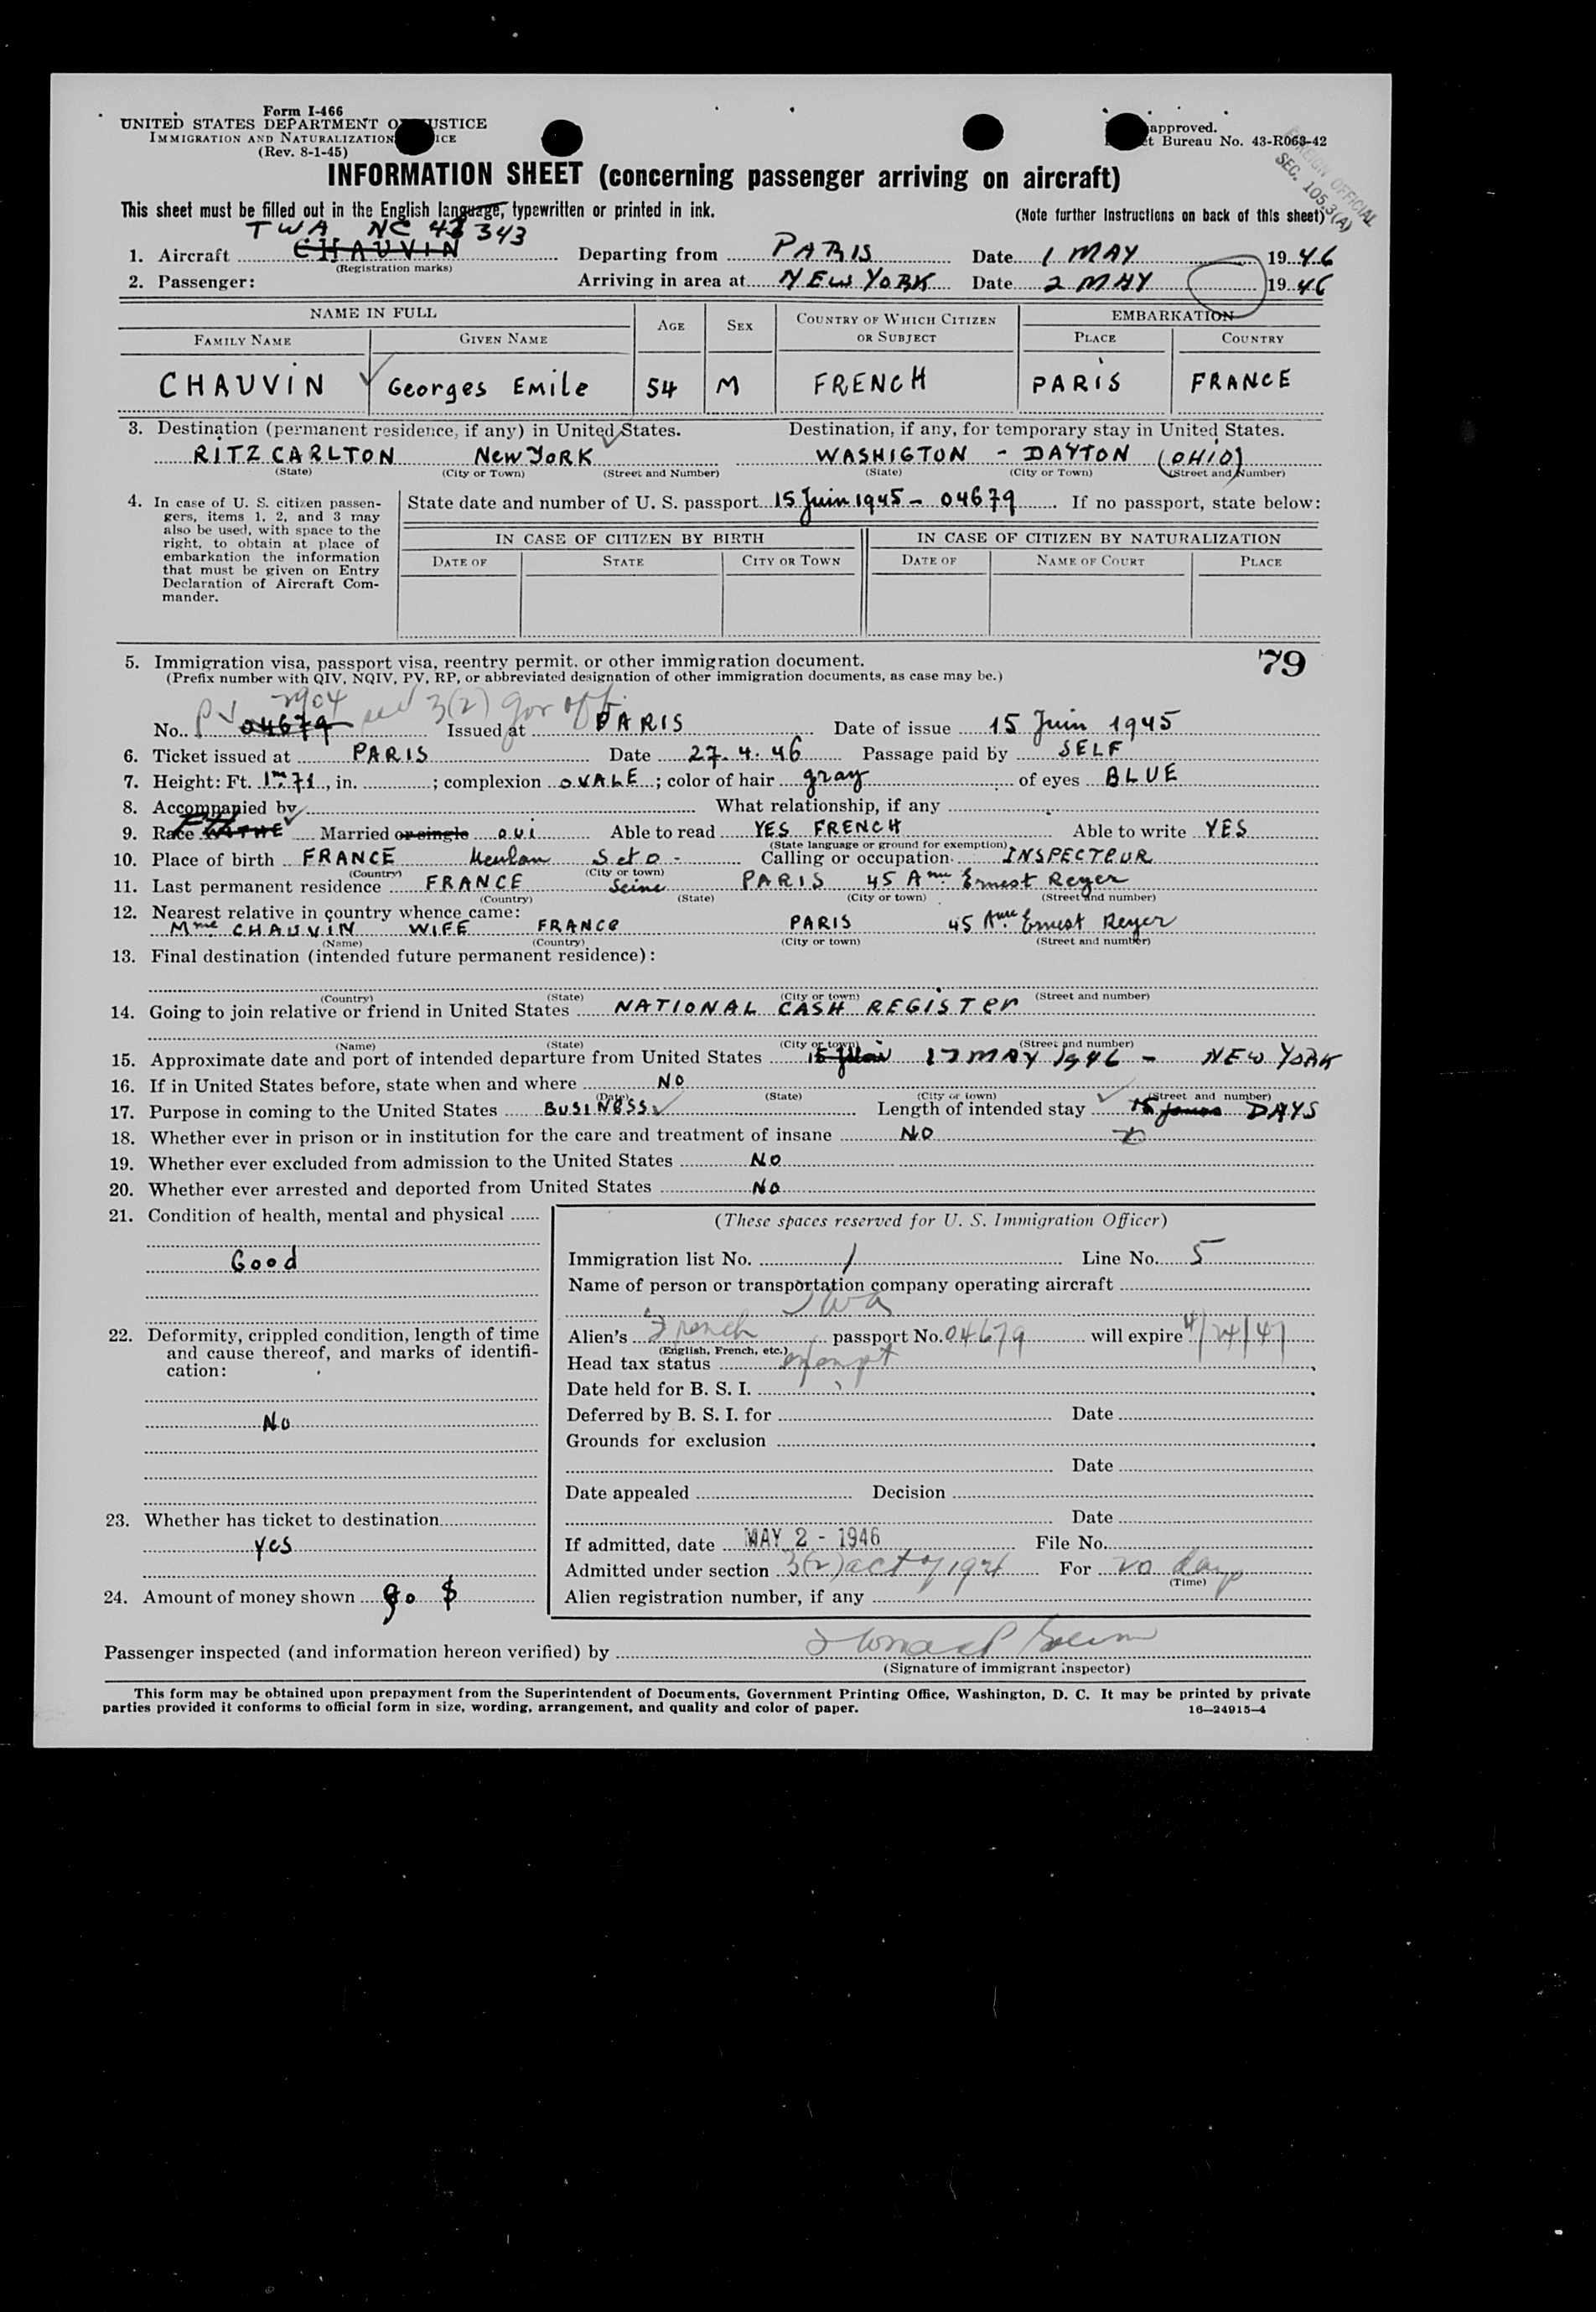 Form I-466
UNITED STATES DEPARTMENT O USTICE
IMMIGRATION AND NATURALIZATION ICE
(Rev. 8-1-45)
approved.
t Bureau No. 43-R063-42
FOREIGN OFFICIAL
SEC. 105.3(A)
INFORMATION SHEET (concerning passenger arriving on aircraft)
This sheet must be filled out in the English language, typewritten or printed in ink.
(Note further instructions on back of this sheet)
TWA NC 343
1. Aircraft CHAUVIN Departing from PARIS Date 1 MAY 1946
(Registration marks)
2. Passenger: Arriving in area at NEW YORK Date 2 MAY 1946
NAME IN FULL AGE SEX COUNTRY OF WHICH CITIZEN OR SUBJECT EMBARKATION
FAMILY NAME GIVEN NAME PLACE COUNTRY
CHAUVIN Georges EMile 54 M FRENCH PARIS FRANCE
3. Destination (permanent residence, if any) in United States. Destination, if any, for temporary stay in United States.
RITZ CARLTON NEW YORK WASHIGTON - DAYTON (OHIO)
(State) (City or Town) (Street and Number) (State) (City or Town) (Street and Number)
4. In case of U. S. citizen passen-
gers, items 1, 2, and 3 may
also be used, with space to the
right, to obtain at place of
embarkation the information
that must be given on Entry
Declaration of Aircraft Com-
mander.
State date and number of U. S. passport 15 Juin 1945 - 04679 If no passport, state below:
IN CASE OF CITIZEN BY BIRTH IN CASE OF CITIZEN BY NATURALIZATION
DATE OF STATE CITY OR TOWN DATE OF NAME OF COURT PLACE
5. Immigration visa, passport visa, reentry permit, or other immigration document. 79
(Prefix number with QIV, NQIV, PV, RP, or abbreviated designation of other immigration documents, as case may be.)
2904 3(2) gov off.
No. PV 04679 Issued at PARIS Date of issue 15 Juin 1945
6. Ticket issued at PARIS Date 27.4.46 Passage paid by SELF
7. Height: Ft. 1m71, in. ; complexion OVALE; color of hair gray of eyes BLUE
8. Accompanied by What relationship, if any
9. Race Married or single oui Able to read YES FRENCH Able to write YES
(State language or ground for exemption)
10. Place of birth FRANCE Meulan S et O - Calling or occupation INSPECTEUR
(Country) (City or town)
11. Last permanent residence FRANCE Seine PARIS 45 Ernest Reyer
(Country) (State) (City or town) (Street and number)
12. Nearest relative in country whence came:
Mme CHAUVIN WIFE FRANCE PARIS 45 Ernest Reyer
(Name) (Country) (City or town) (Street and number)
13. Final destination (intended future permanent residence):
(Country) (State) (City or town) (Street and number)
14. Going to join relative or friend in United States NATIONAL CASH REGISTER
(Name) (State) (City or town) (Street and number)
15. Approximate date and port of intended departure from United States 15 17 MAY 1946 - NEW YORK
16. If in United States before, state when and where NO
(Date) (State) (City or town) (Street and number)
17. Purpose in coming to the United States BUSINESS Length of intended stay 15 jours DAYS
18. Whether ever in prison or in institution for the care and treatment of insane NO
19. Whether ever excluded from admission to the United States NO
20. Whether ever arrested and deported from United States NO
21. Condition of health, mental and physical
Good
22. Deformity, crippled condition, length of time
and cause thereof, and marks of identifi-
cation:
No
23. Whether has ticket to destination
yes
24. Amount of money shown 90 $
(These spaces reserved for U. S. Immigration Officer)
Immigration list No. 1 Line No. 5
Name of person or transportation company operating aircraft
TWA
Alien's French passport No. 04679 will expire 4/24/47
(English, French, etc.)
Head tax status exempt
Date held for B. S. I.
Deferred by B. S. I. for Date
Grounds for exclusion
Date
Date appealed Decision
Date
If admitted, date MAY 2 - 1946 File No.
Admitted under section 3(2) act of 1924 For 20 days
(Time)
Alien registration number, if any
Passenger inspected (and information hereon verified) by
(Signature of immigrant inspector)
This form may be obtained upon prepayment from the Superintendent of Documents, Government Printing Office, Washington, D. C. It may be printed by private
parties provided it conforms to official form in size, wording, arrangement, and quality and color of paper. 16—24915-4